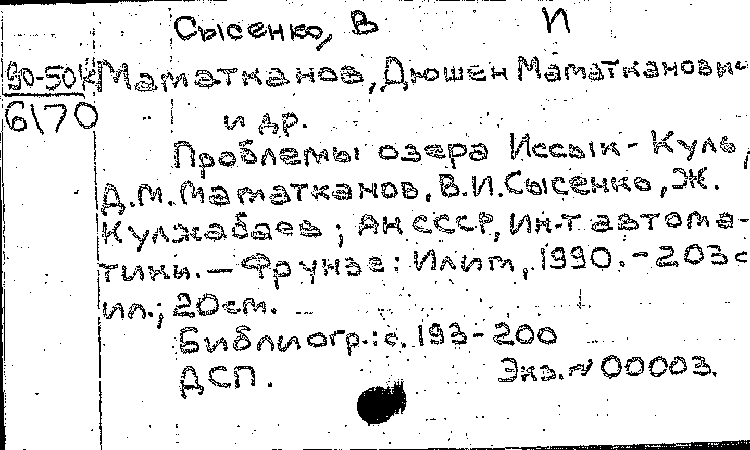 Сысенко, В И
90-50к Маматканов, Дюшен Маматканович
6170 и др.
Проблемы озера Иссык-Куль,
Д.М.Маматканов, В.И.Сысенко, Ж.
Кулжабаев; АН СССР, Ин-т автома-
тики. — Фрунзе: Илим, 1990. - 203 с
ил.; 20 см.
Библиогр.: с. 193-200
ДСП. Экз. № 00003.